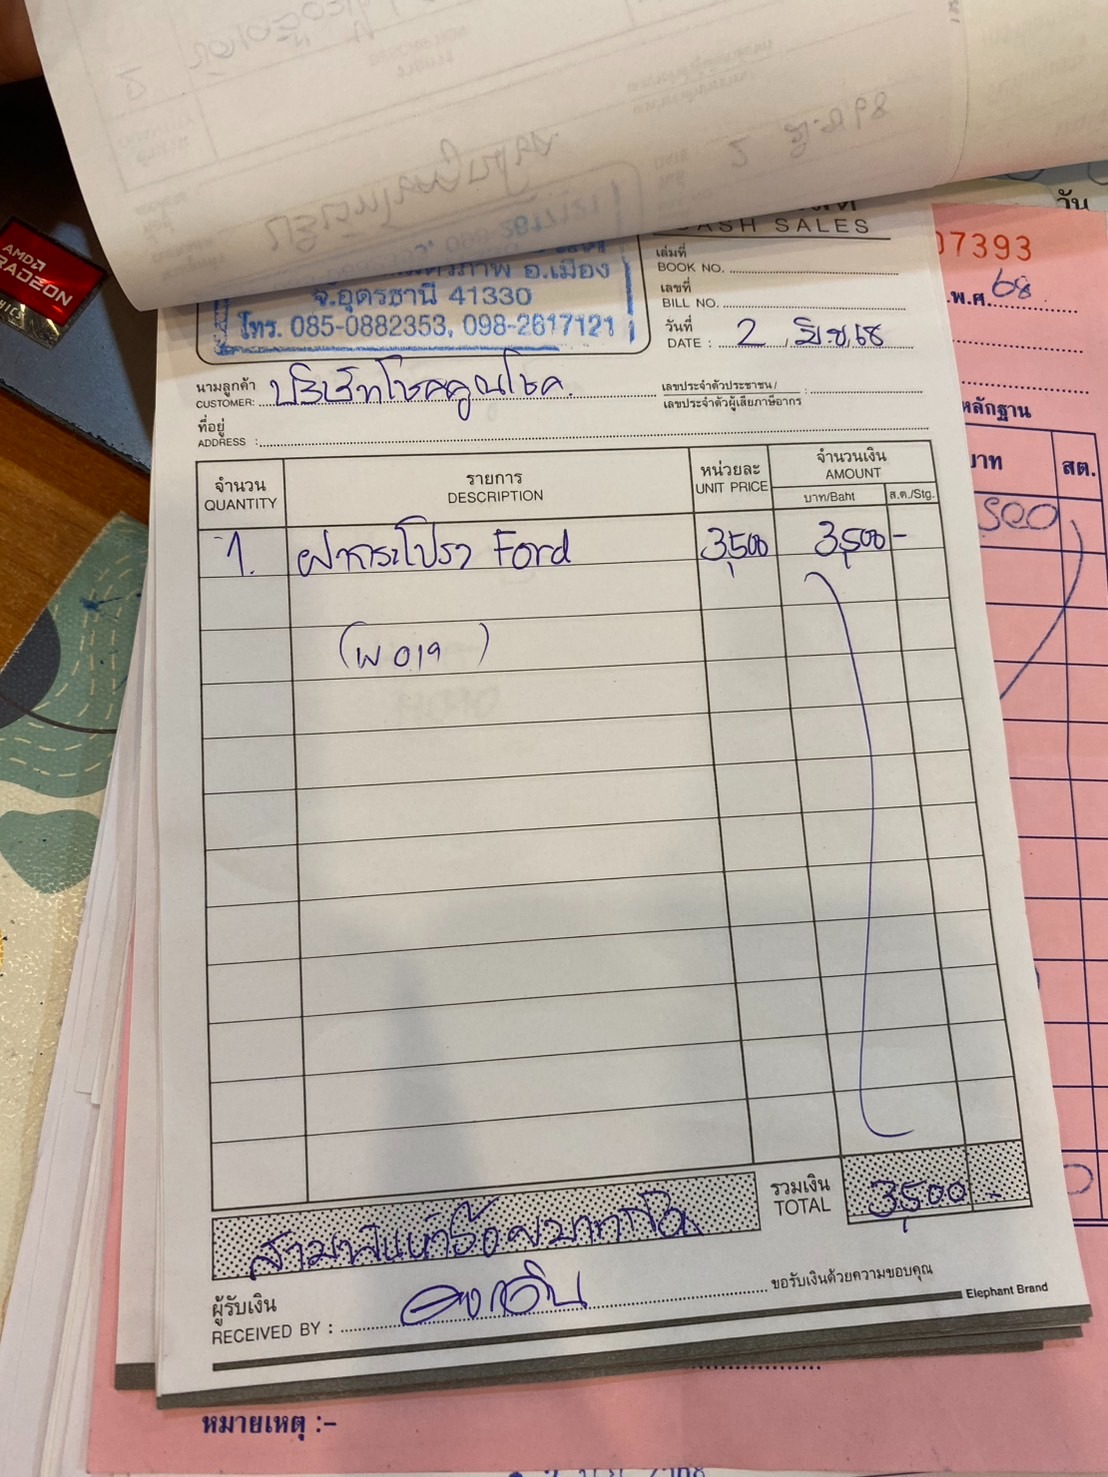 AMD
RADEON
CASH SALES
มิตรภาพ อ.เมือง
จ.อุดรธานี 41330
โทร. 085-0882353, 098-2617121
เล่มที่
BOOK NO.
เลขที่
BILL NO.
วันที่
DATE : 2 มิ.ย. 68
นามลูกค้า
CUSTOMER: บริษัทโชคคูณโชค
เลขประจำตัวประชาชน/
เลขประจำตัวผู้เสียภาษีอากร :
ที่อยู่
ADDRESS :
จำนวน
QUANTITY
รายการ
DESCRIPTION
หน่วยละ
UNIT PRICE
จำนวนเงิน
AMOUNT
บาท/Baht ส.ต./Stg.
1. ฝากระโปรง Ford 3,500 3,500 -
(พ 019)
รวมเงิน
TOTAL 3,500 -
สามพันห้าร้อยบาทถ้วน
ผู้รับเงิน
RECEIVED BY :
ขอรับเงินด้วยความขอบคุณ
Elephant Brand
วัน
07393
พ.ศ. 68
หลักฐาน
บาท สต.
500
หมายเหตุ :-